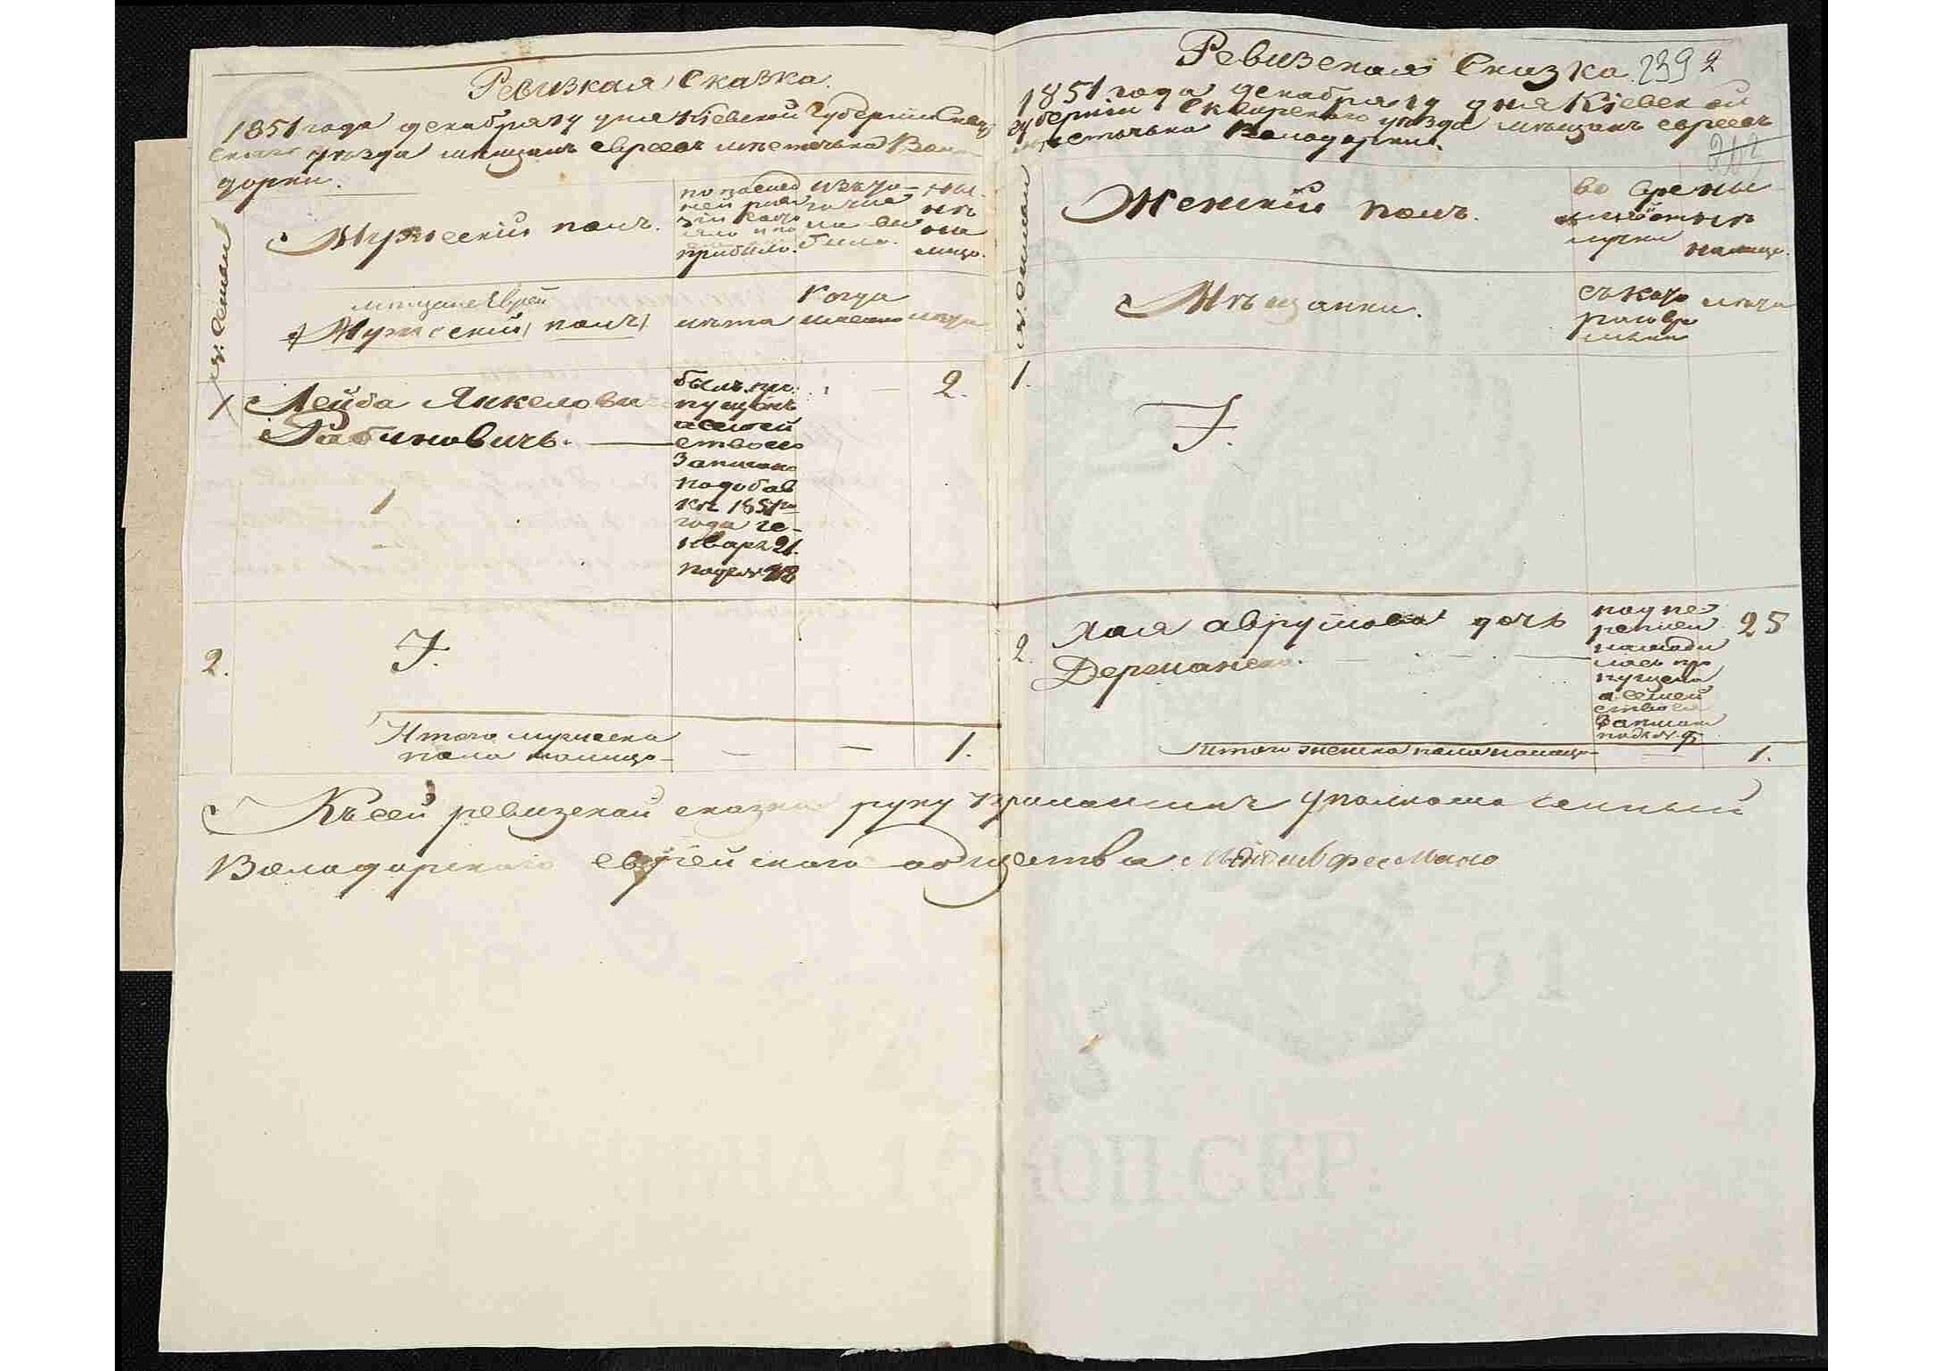 Ревизкая Сказка.
1851 года декабря 19 дня Кіевской Губерніи Сквир
скаго уезда мещанъ евреевъ местечька Воло
дорки.
№ Семьи
Мужескій полъ.
по послед
ней реви
зіи
прибыло.
изъ
числа
выбыло.
Ны
нѣ
на
лицо.
мещане Еврей
Мужескій полъ
лѣта
Когда
именно
лѣта
1
Лейба Янкеловичъ
Рабиновичъ.
1
былъ про
пущенъ
а семей
ство его
Записано
подобав
кѣ 1851го
года ге-
нваря 21.
под №
2.
2.
Итого мужеска
пола налицо
1.
Ревизская Сказка. 239 2
1851 года декабря 19 дня Кіевской
губерніи Сквирскаго уезда мѣщанъ евреевъ
местечька Володорки.
202
№ Семьи
Женскій полъ.
во време
нной от
лучки
Ны
нѣ
налицо.
Мѣщанки.
съ кото
раго вре
мени
лѣта
1.
2.
Хая аврумова дочь
Дерманска.
под пе
реписи
находи
лась про
пущена
а семей
ство ея
Записано
под №
25
Итого женска пола налицо
1.
Къ сей ревизской сказки руку приложилъ Уполномоченный
Володарскаго еврейского общества
51
ЦѢНА 15 КОП. СЕР.